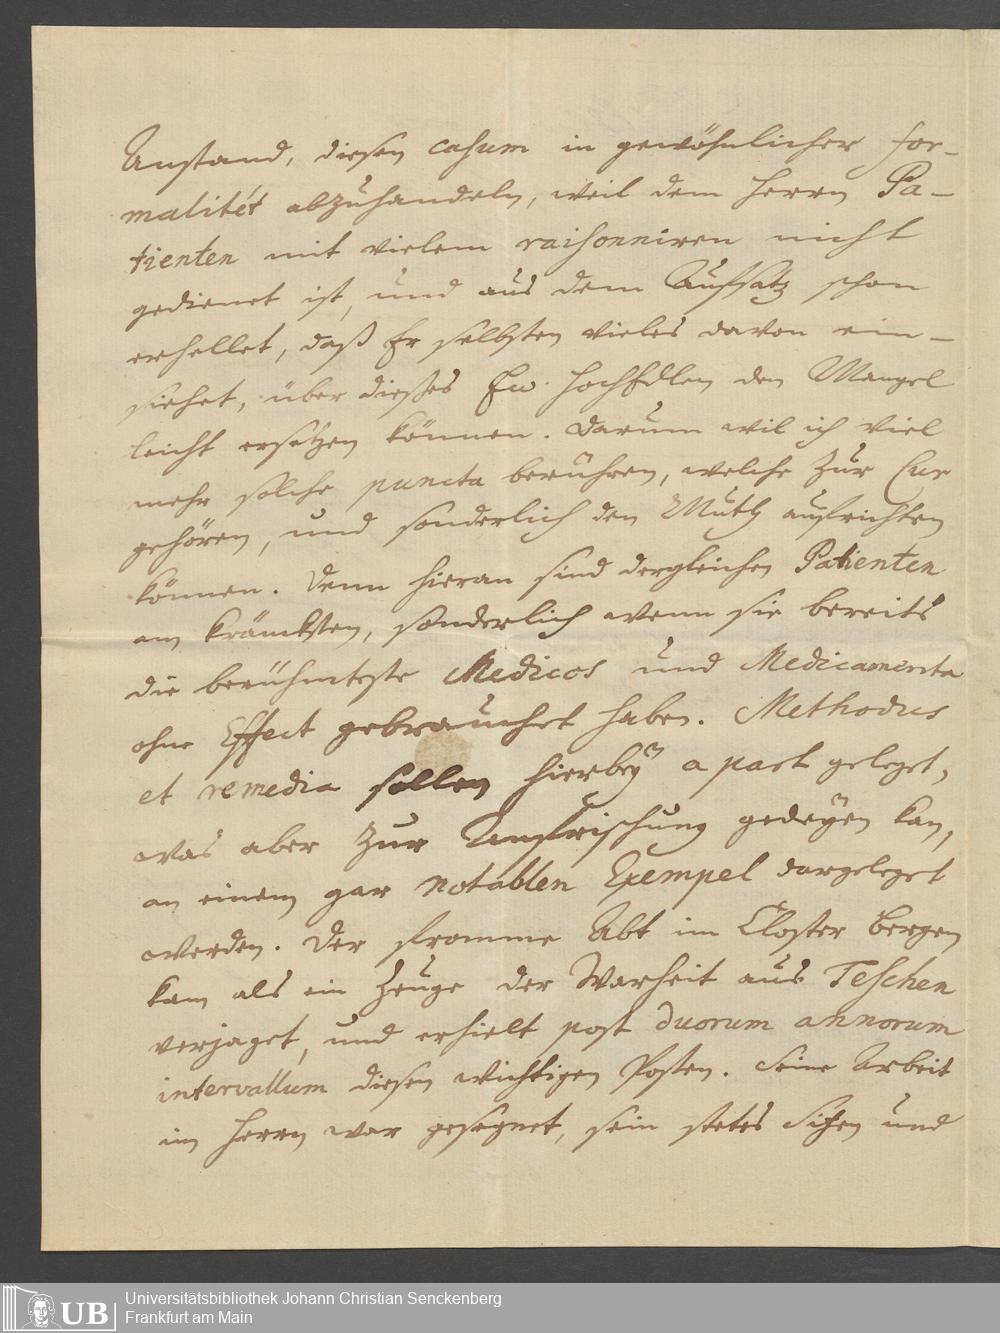 Anstand, diesen casum in gewöhnlicher for-
malitét abzuhandeln, weil dem Herrn Pa-
tienten mit vielem raisonniren nicht
gedienet ist, und aus dem Aufsatz schon
erhellet, daß Er selbsten vieles davon ein-
siehet, über dieses Ew. HochEdlen den Mangel
leicht ersetzen können. Darum wil ich viel
mehr solche puncta berühren, welche zur Cur
gehören, und sonderlich den Muth aufrichten
können. Denn hieran sind dergleichen Patienten
am kräncksten, sonderlich wenn sie bereits
die berühmteste Medicos und Medicamenta
ohne Effect gebrauchet haben. Methodus
et remedia sollen hierbey a part geleget,
was aber zur Aufrischung gedeyen kan,
an einem gar notablen Exempel dargeleget
werden. Der fromme Abt im Closter Bergen
kam als ein Zeuge der Warheit aus Teschen
verjaget, und erhielt post duorum annorum
intervallum diesen wichtigen Posten. Seine Arbeit
im Herrn war gesegnet, sein stetes Sitzen und
UB
Universitätsbibliothek Johann Christian Senckenberg
Frankfurt am Main